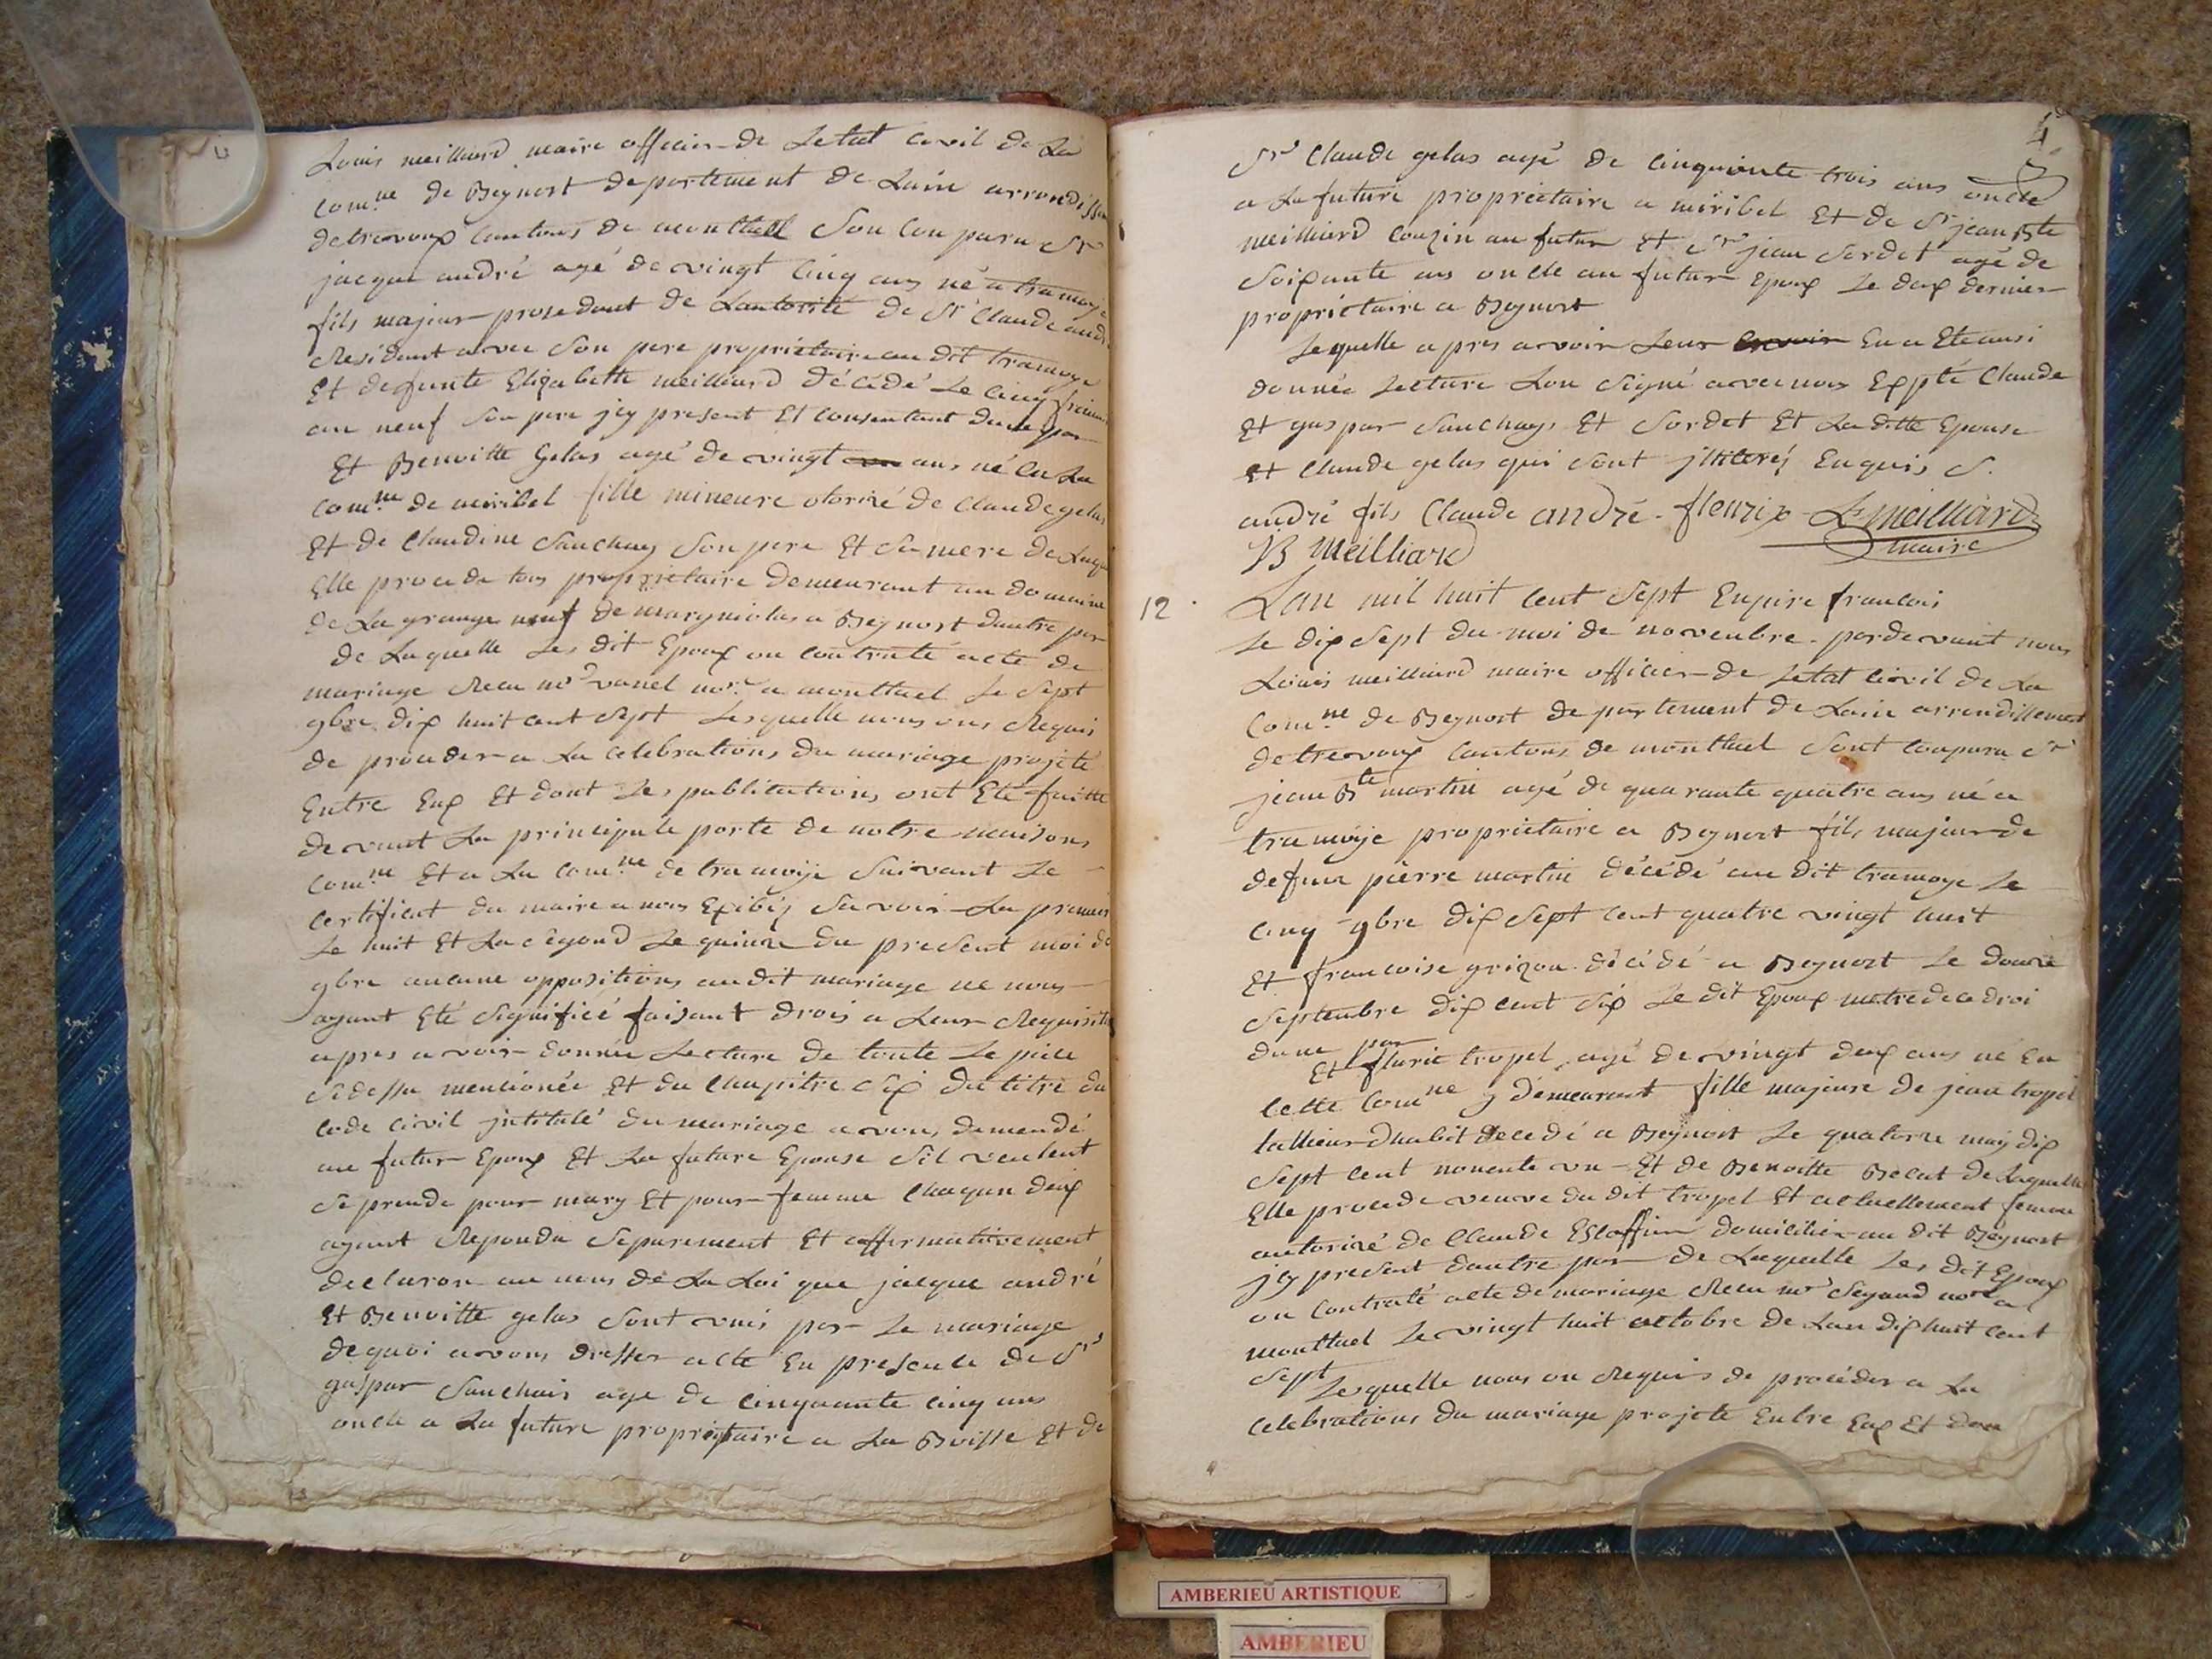 Louis meilliard maire officier de Letat civil de La
com.ne de Beynost departement de Lain arrondissem
de trevoux cantons de montluel Son Conparu Sr
jacque andré agé de vingt cinq ans né a tramoye
fils majeur prosedant de Lautorité de Sr Claude andr
Residant avec Son pere propriétaire au dit tramoye
Et defunte Elizabette meilliard décédé Le cinq frimai
an neuf Son pere jcy present Et consentant dune par
Et Benoitte Gelas agé de vingt ans né En La
com.ne de miribel fille mineure otorizé de Claude gelas
Et de Claudine Sauchay Son pere Et Sa mere de Laqu
Elle procede tous propriétaire demeurant au domaine
de La grange neuf de margniolas a Beynost dautre par
de Laquelle Les dit Epoux on contraté acte de
mariage Recu me vanel nore a montluel Le Sept
9bre dix huit cent Sept Lesquelle nous ons Requis
de proceder a La celebrations du mariage projeté
Entre Eux Et dont Les publications ont Eté faitte
devant La principale porte de notre maisons
com.ne Et a La com.ne de tramoye Suivant Le
certificat du maire a nous Exibéz Savoir La premier
Le huit Et La cegond Le quinze du present moi de
9bre aucune oppositions audit mariage ne nous
ayant Eté Signifiéé faisant drois a Leur Requisitio
apres avoir donnée Lecture de toute Le pièce
Sidessu mencionée Et du Chapitre Six du titre du
code civil jntitulé du mariage avons demendé
au futur Epoux Et La future Epouse Sil veulent
Se prende pour mary Et pour femme Chaqun deux
ayant Repondu Séparement Et affirmativement
declaron au nom de La Loi que jacque andré
Et Benoitte gelas Sont unis par Le mariage
de quoi avons dresser acte En presence de Sr
gaspar Sauchais age de cinquante cinq ans
oncle a La future propriétaire a La Boisse Et de
4
Sr Claude gelas agé de cinquante trois ans oncle
a La future propriétaire a miribel Et de Sr jean Bte
meilliard couzin au futur Et Sr jean Sordet agé de
Soixante ans oncle au futur Epoux Le deux dernier
propriétaire a Beynost
Lequelle apres avoir Leur En a Eté ausi
donnée Lecture Lon Signé avec nous Expté Claude
Et gaspar Sauchays Et Sordet Et La ditte Epouse
Et Claude gelas qui Sont jlliteréz Enquis S.
andré fils Claude andré - fleurix Ls meilliard
B meilliard maire
12 Lan mil huit cent Sept Enpire francois
Le dix Sept du moi de novenbre pardevant nous
Louis meilliard maire officier de Letat civil de La
Com.ne de Beynost departement de Lain arrondissement
de trevoux cantons de montluel Sont Conparu Sr
jean Bte martin agé de quarante quatre ans né a
tramoye propriétaire a Beynost fils majeur de
defun pièrre martin décédé au dit tramoye Le
cinq 9bre dix Sept cent quatre vingt huit
Et francoise grizou décédé a Beynost Le douze
Septenbre dix cent Six Le dit Epoux metre de ce droi
dune par
Et flurie tropel agé de vingt deux ans né En
cette Com.ne y demeurent fille majeure de jean tropel
tallieur dhabit decedé a Beynost Le quatorze may dix
Sept cent nonente un Et de Benoitte Belut de Laquelle
Elle procede veuve du dit tropel Et actuellement femme
autorizé de Claude Esloffier domicilier au dit Beynost
jcy present dautre par de Laquelle Les dit Epoux
on contraté acte de mariage Recu me Segaud nore a
montluel Le vingt huit octobre de Lan dix huit cent
Sept
Lesquelle nous on Requis de procéder a La
celebrations du mariage projeté Entre Eux Et don
AMBERIEU ARTISTIQUE
AMBERIEU